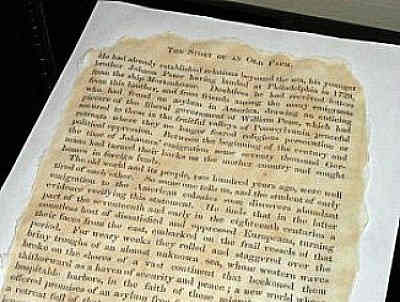 THE STORY OF AN OLD FARM.
He had already established relations beyond the sea, his younger
brother Johann Peter having landed at Philadelphia in
from the ship Mortonhouse. Doubtless he had received letters
from this brother, and from friends among the many emigrants
who had found an asylum in America, showing an enticing
picture of the liberal government of William Penn, which had
secured to them in the fruitful valleys of Pennsylvania peaceful
retreats where they no longer feared religious persecution or
political oppression. Between the beginning of the century and
the time of Johannes' emigration some seventy thousand Ger-
mans had turned their backs on the mother country and sought
homes in foreign lands.
The old world and its people, two hundred years ago, were well
tired of each other, some one tells us, and the student of early
emigration to the American colonies soon discovers abundant
evidence verifying this statement. He finds that in the latter
part of the seventeenth and early in the eighteenth centuries a
countless host of dissatisfied and oppressed Europeans, turning
their faces from the east, embarked on the frail vessels of that
period. For weary weeks they rolled and staggered over the
briny troughs of an almost unknown sea, whose western waves
broke on the shores of a vast continent that beckoned them
thitherward as a haven of security and peace; a new world whose
hospitable harbors, in the faith of those
offered promises of an asylum from
a retreat full of